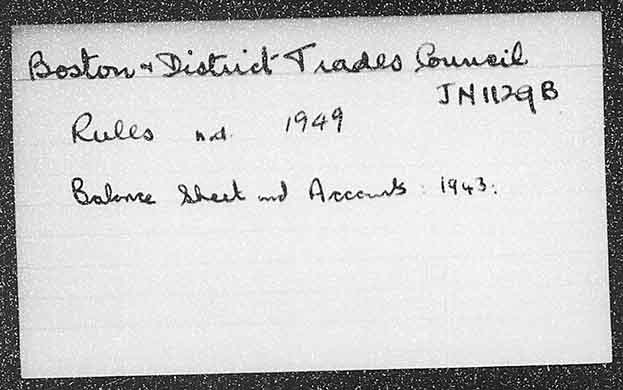 Boston + District Trades Council
JN1129B
Rules n.d. 1949
Balance Sheet and Accounts : 1943 :